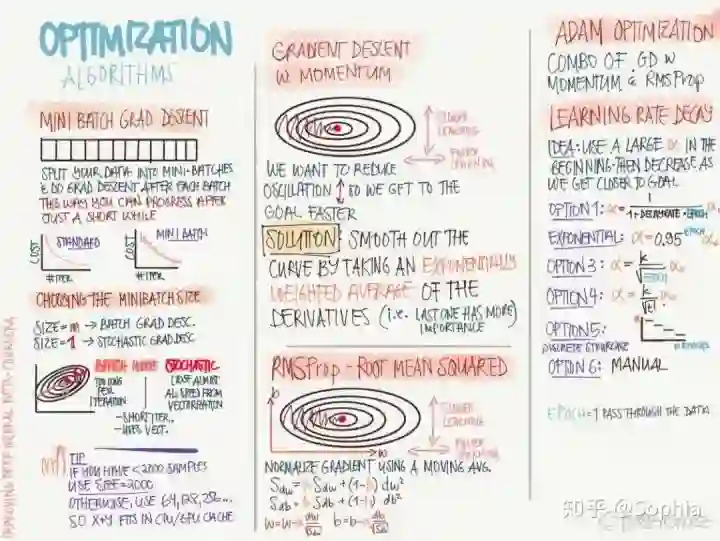 OPTIMIZATION
ALGORITHMS
MINI BATCH GRAD DESCENT
SPLIT YOUR DATA INTO MINI-BATCHES
& DO GRAD DESCENT AFTER EACH BATCH
THIS WAY YOU CAN PROGRESS AFTER
JUST A SHORT WHILE
COST
STANDARD
# ITER
COST
MINI BATCH
# ITER
CHOOSING THE MINIBATCH SIZE
SIZE=m → BATCH GRAD DESC.
SIZE=1 → STOCHASTIC GRAD DESC
BATCH
TOO LONG
PER
ITERATION
STOCHASTIC
LOSE ALMOST
ALL SPEED FROM
VECTORIZATION
-SHORT ITER.
-USES VECT.
TIP
IF YOU HAVE <2000 SAMPLES
USE SIZE=2000
OTHERWISE, USE 64, 128, 256...
SO X+Y FITS IN CPU/GPU CACHE
GRADIENT DESCENT
W MOMENTUM
SLOWER
LEARNING
FASTER
LEARNING
WE WANT TO REDUCE
OSCILLATION ↕ SO WE GET TO THE
GOAL FASTER
SOLUTION: SMOOTH OUT THE
CURVE BY TAKING AN EXPONENTIALLY
WEIGHTED AVERAGE OF THE
DERIVATIVES (i.e. LAST ONE HAS MORE)
IMPORTANCE
RMSProp - ROOT MEAN SQUARED
b
w
SLOWER
LEARNING
FASTER
LEARNING
NORMALIZE GRADIENT USING A MOVING AVG.
ADAM OPTIMIZATION
COMBO OF GD W
MOMENTUM & RMSProp
LEARNING RATE DECAY
IDEA: USE A LARGE α IN THE
BEGINNING THEN DECREASE AS
WE GET CLOSER TO GOAL
OPTION 1: α = 1 / 1+DECAYRATE·EPOCH α₀
EXPONENTIAL: α = 0.95^EPOCH α₀
OPTION 3: α = k / √EPOCH α₀
OPTION 4: α = k / √t α₀
OPTION 5:
DISCRETE STAIRCASE
OPTION 6: MANUAL
EPOCH = 1 PASS THROUGH THE DATA
知乎 @Sophia